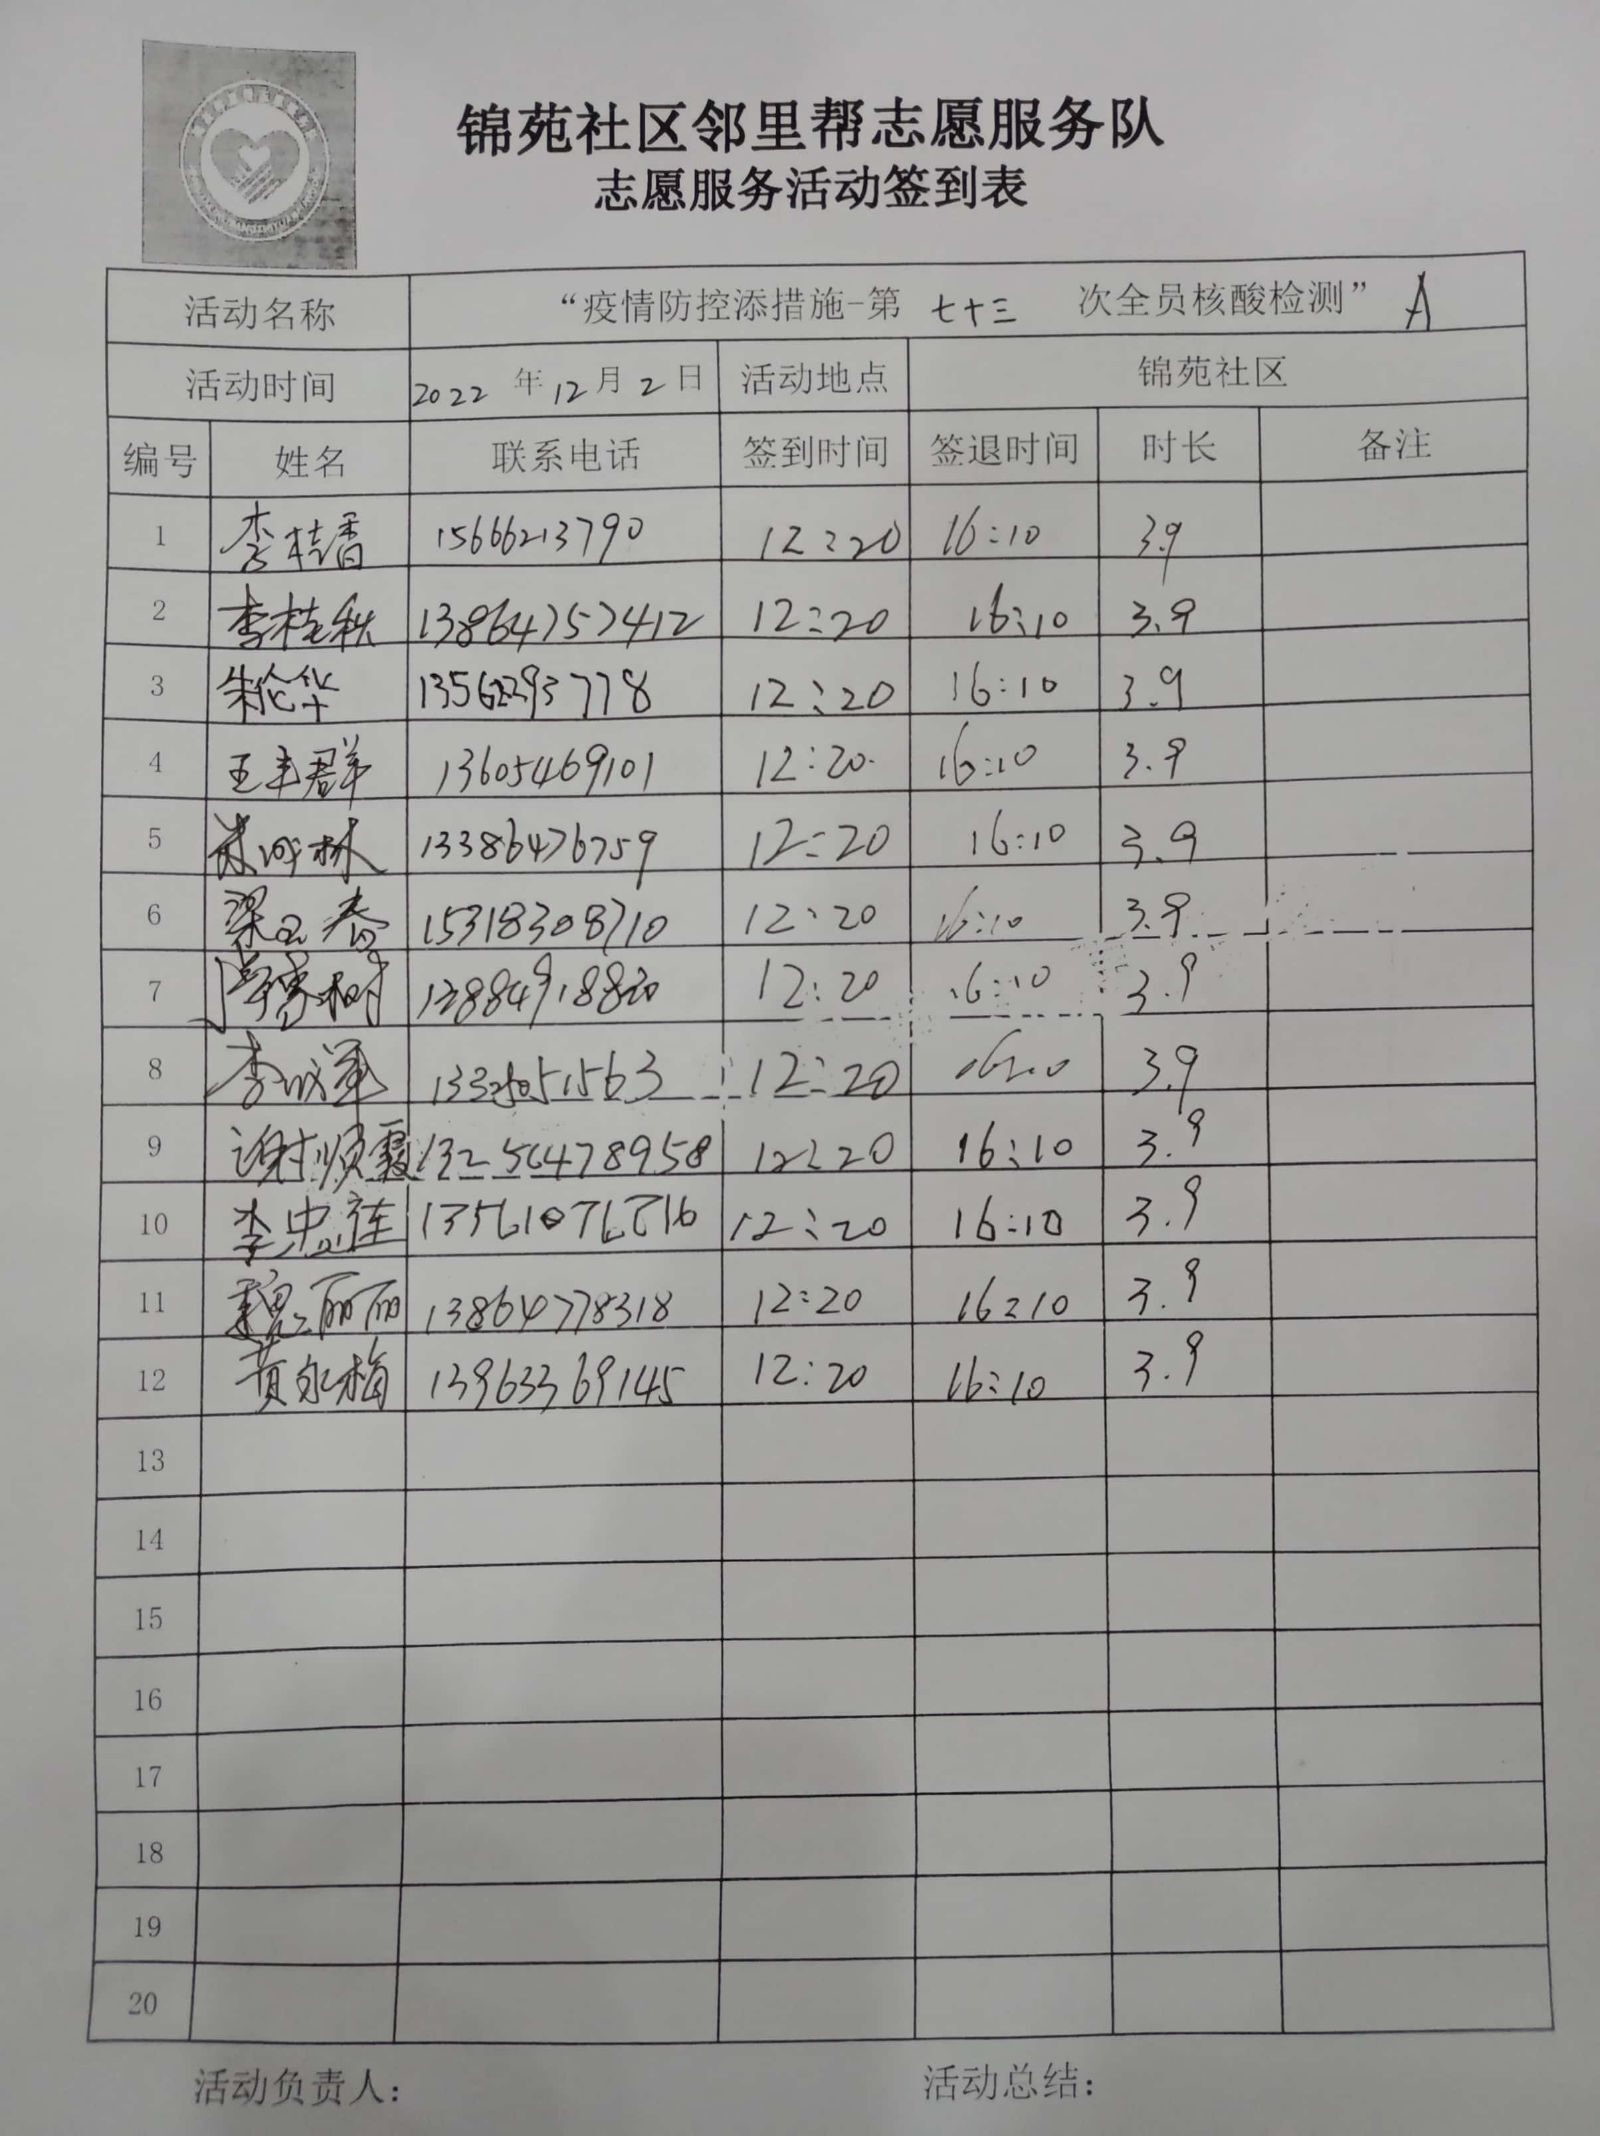 锦苑社区邻里帮志愿服务队
志愿服务活动签到表
活动名称 “疫情防控添措施-第 七十三 次全员核酸检测” A
活动时间 2022 年 12 月 2 日 活动地点 锦苑社区
编号 姓名 联系电话 签到时间 签退时间 时长 备注
1 李桂香 15666213790 12:20 16:10 3.9
2 李桂秋 13864757412 12:20 16:10 3.9
3 朱伦华 13562293778 12:20 16:10 3.9
4 王丰群 13605469101 12:20 16:10 3.9
5 13386476759 12:20 16:10 3.9
6 梁玉春 15318308710 12:20 16:10 3.9
7 12:20 16:10 3.9
8 12:20 3.9
9 谢顺霞 12:20 16:10 3.9
10 12:20 16:10 3.9
11 魏丽丽 13864778318 12:20 16:10 3.9
12 黄永梅 13963369145 12:20 16:10 3.9
13
14
15
16
17
18
19
20
活动负责人： 活动总结：